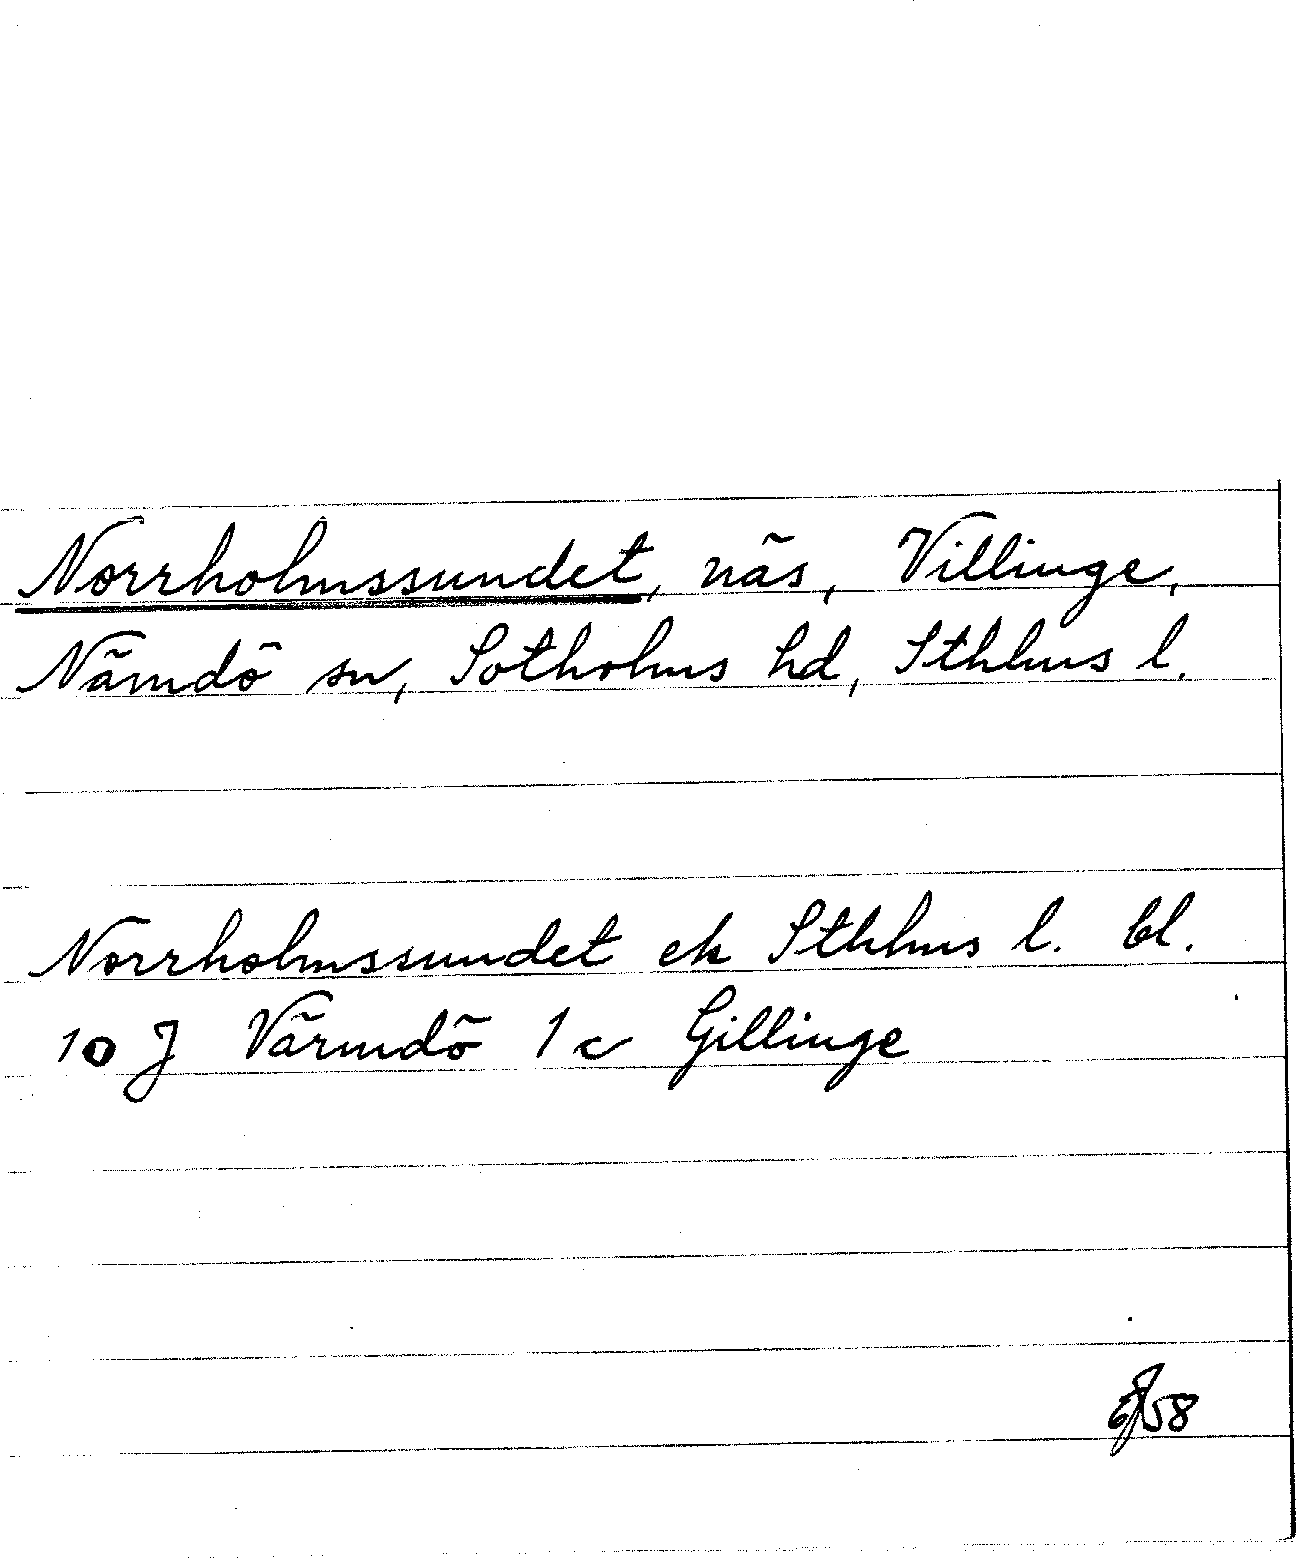 Norrholmssundet, näs, Villinge,
Nämdö sn, Sotholms hd, Sthlms l.
Norrholmssundet ek Sthlms l. bl.
10 J Värmdö 1 c Gillinge
58